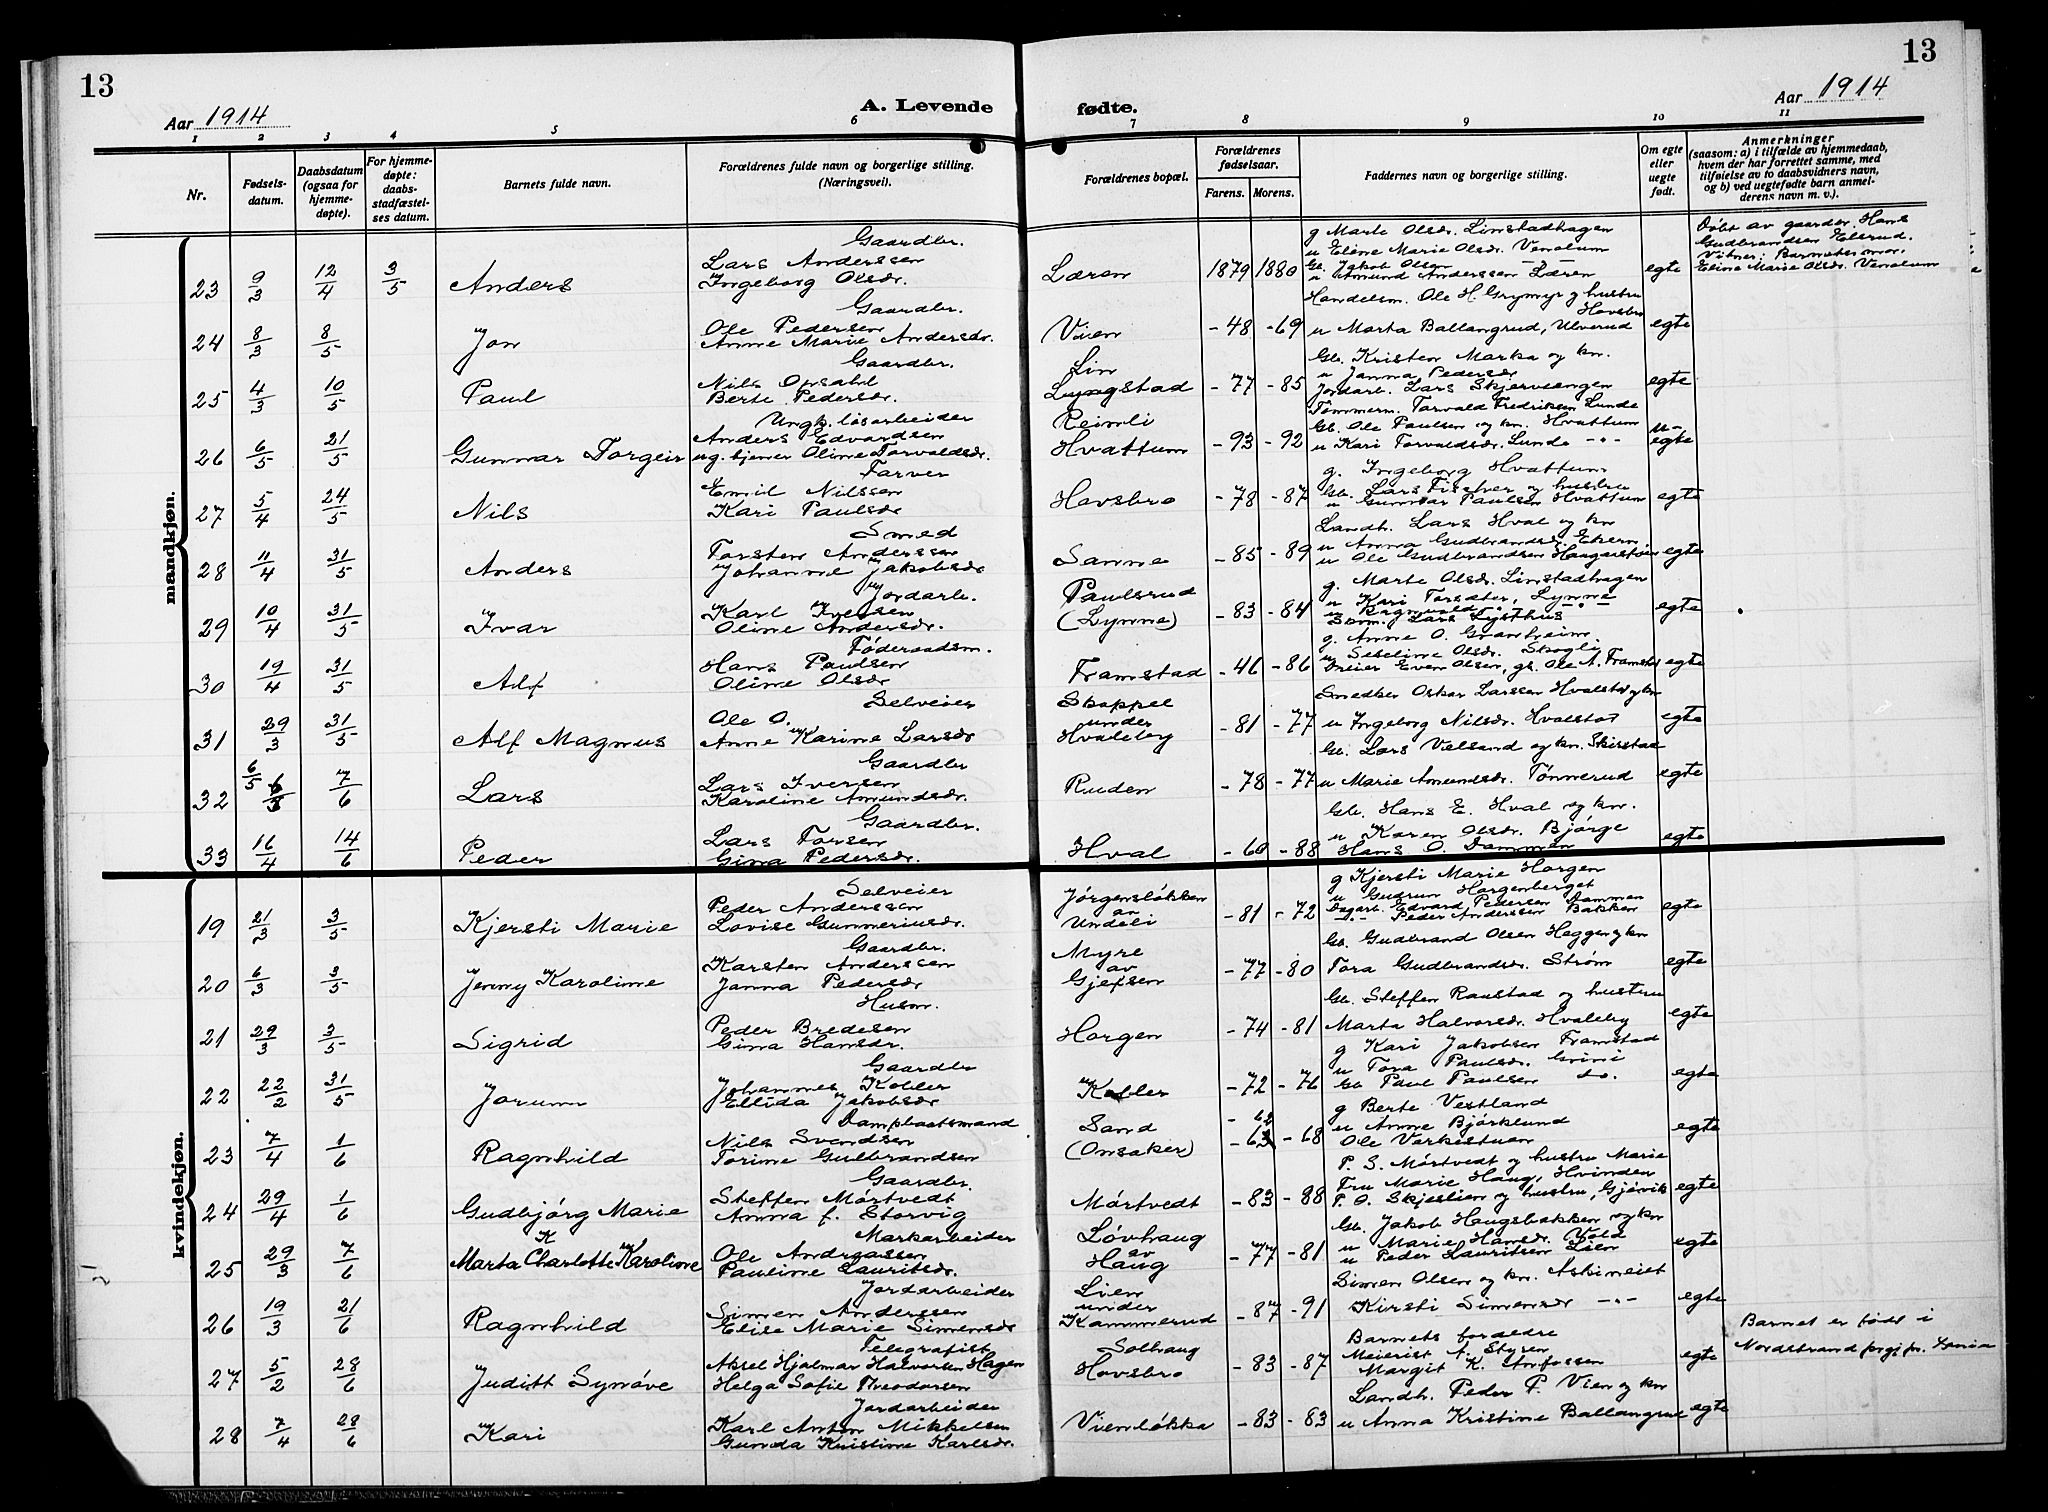 13
13
Aar 1914
A. Levende fødte.
Aar 1914
1 2 3 4 5 6 7 8 9 10 11
Nr.
Fødsels-
datum.
Daabsdatum
(ogsaa for
hjemme-
døpte).
For hjemme-
døpte:
daabs-
stadfæstel-
ses datum.
Barnets fulde navn.
Forældrenes fulde navn og borgerlige stilling.
(Næringsvei).
Forældrenes bopæl.
Forældrenes
fødselsaar.
Farens. Morens.
Faddernes navn og borgerlige stilling.
Om egte
eller
uegte
født.
Anmerkninger
(saasom: a) i tilfælde av hjemmedaab,
hvem der har forrettet samme, med
tilføielse av to daabsvidners navn,
og b) ved uegtefødte barn anmel-
derens navn m. v.).
mandkjøn.
23 9/3 12/4 3/5 Anders
Gaardbr.
Lars Anderssen
Ingeborg Olsdr.
Læren 1879 1880
g Marte Olsdr. Linstadhagen
u Eline Marie Olsdr. Venolum
Gb. Jakob Olsen
u Amund Anderssen Læren
egte
Døbt av gaardbr. Hans
Gudbrandsen Elsrud.
Vitner: Barnets mor.
Eline Marie Olsdr. Venolum
24 8/3 8/5 Jon
Gaardbr.
Ole Pedersen
Anne Marie Andersdr.
Vien -48 -69
Handelsm. Ole H. Grymyr g hustru
Hovsbro
u Marta Ballangrud, Ulverud
egte
25 4/3 10/5 Paul
Gaardbr.
Nils Opsahl
Berte Pedersdr.
Lin
Lyngstad -77 -85
Gb. Kristen Marka og kn.
u Janna Pedersdr
Jordarb. Lars Skjervengen
egte
26 6/5 21/5 Gunnar Torgeir
Ungk. løsarbeider
Anders Edvardsen
ug. tjener Oline Torvaldsdr.
Reimli
Hvattum -93 -92
Tømmerm. Torvald Fredriksen Lunde
Gb. Ole Paulsen og kn. Hvattum
u Kari Torvaldsdr. Lunde -"-
u-
egte
27 5/4 24/5 Nils
Farver
Emil Nilssen
Kari Paulsdr
Hovsbro -78 -87
g. Ingeborg Hvattum
Gb. Lars Fischer og hustru
u Gunnar Paulsen Hvattum
egte
28 11/4 31/5 Anders
Smed
Torsten Anderssen
Johanne Jakobsdr
Sanne -85 -89
Landh. Lars Hval og kn
u Anna Gudbrandsdr. Ekern
u Ole Gudbrandsen Haugerstuen
egte
29 10/4 31/5 Ivar
Jordarb.
Karl Iversen
Oline Andersdr.
Paulsrud
(Lynne) -83 -84
g. Marte Olsdr. Linstadhagen
u Kari Torsæter, Lynne
u Ragnvald -"-
Lars Lysthus
egte
30 19/4 31/5 Alf
Føderaadsm.
Hans Paulsen
Oline Olsdr
Framstad -46 -86
g. Anne O. Granheim.
u Seseline Olsdr. Skogli
Dreier Even Olsen, gb. Ole A. Framstad
egte
31 29/3 31/5 Alf Magnus
Selveier
Ole O.
Anne Karine Larsdr
Skoppel
under
Hvaleby -81 -77
Smedker Oskar Larssen Hvalstad og kn
u Ingeborg Nilsdr. Hvalstad
egte
32 6/5 7/6 Lars
Gaardbr
Lars Iversen
Karoline Amundsdr.
Ruden -78 -77
Gb. Lars Velsand og kn. Skirstad
u Marie Amundsdr. Tønnerud
egte
33 16/4 14/6 Peder
Gaardbr.
Lars Torsen
Gina Pedersdr.
Hval -60 -88
Gb. Hans E. Hval og kn.
u Karen Olsdr. Bjørge
Hans O. Dammen
egte
kvindekjøn.
19 21/3 3/5 Kjersti Marie
Selveier
Peder Anderssen
Lovise Gunneriusdr.
Jørgensløkken
av
Undeli -81 -72
g Kjersti Marie Horgen
u Gudrun Horgenberget
Dagarb. Edvard Pedersen Dammen
-"- Peder Anderssen Bakken
egte
20 6/3 3/5 Jenny Karoline
Gaardbr.
Karsten Anderssen
Janna Pedersdr
Myre
av
Gjefsen -77 -80
Gb. Gudbrand Olsen Heggen og kn
Tora Gudbrandsdr. Strøm
egte
21 29/3 3/5 Sigrid
Husm.
Peder Bredesen
Gina Hansdr.
Horgen -74 -81
Gb. Steffen Raustad og hustru
Marta Halvorsdr. Hvaleby
egte
22 22/2 31/5 Jorunn
Gaardbr
Johannes Kobler
Ellida Jakobsdr
Kobler -72 -76
g Kari Jakobsen Framstad
u Tora Paulsdr. Grini
Gb Paul Paulsen do.
egte
23 7/4 1/6 Ragnhild
Damplaatsmand
Nils Svendsen
Torine Gulbrandsen
Sand
(Onsaker) -63 -68
g Berte Vestland
u Anne Bjørklund
Ole Verkestuen
egte
24 29/4 1/6 Gudbjørg Marie
Gaardbr.
Steffen Mørtvedt
Anna f. Storvig
Mørtvedt -83 -88
P. S. Mørtvedt og hustru Marie
Fru Marie Haug, Hvinden
P. O. Skjeslien og hustru, Gjøvik
egte
25 29/3 7/6 Marta Charlotte Karoline
K
Markarbeider
Ole Andreassen
Pauline Lauritsdr.
Løvhaug
av
Haug -77 -81
Gb. Jakob Haugsbakken og kn
u Marie Hansdr. Vold
u Peder Lauritsen Lien
egte
26 19/3 21/6 Ragnhild
Jordarbeider
Simen Anderssen
Elise Marie Simensdr
Lien
under
Kammerud -87 -91
Simen Olsen og kn. Askimeiet
Kirsti Simensdr -"-
egte
27 5/2 28/6 Juditt Synøve
Telegrafist
Aksel Hjalmar Halvorsen Hagen
Helga Sofie Theodorsen
Solhaug
Hovsbro -83 -87
Barnets foreldre
Meierist A. Styren
Margit K. Arnfossen
egte
Barnet er født i
Nordstrand prgj.
28 7/4 28/6 Kari
Jordarbeider
Karl Anton Mikkelsen
Gunda Kristine Karlsdr.
Vienløkka -83 -83
Landh. Peder P. Vien og kn
u Anna Kristine Ballangrud
egte